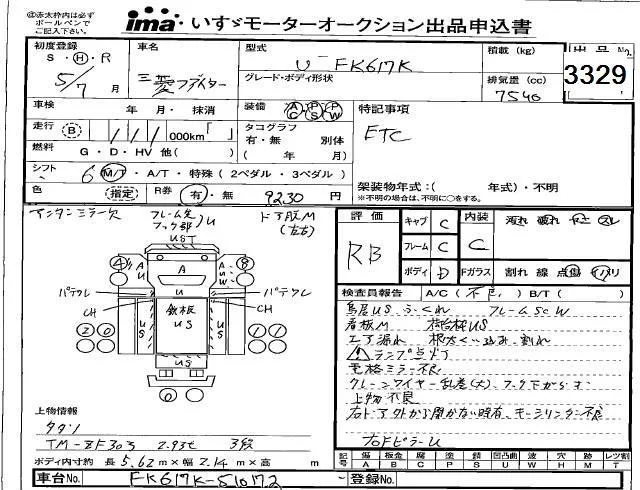 ※赤太枠内は必ず
ボールペンで
ご記入下さい。
ima いすゞモーターオークション出品申込書
初度登録 S・H・R 5/7 月
車名 三菱ファイター
型式 U-FK617K
グレード・ボディ形状
積載 (kg)
排気量 (cc) 7540
出品No. 3329
車検 年 月・抹消
装備 AC PS PW
特記事項
ETC
走行 B ／／／000km「 」
タコグラフ 有・無 別体 ( 年 月)
燃料 G・D・HV 他( )
シフト 6 M/T・A/T・特殊 (2ペダル・3ペダル)
架装物年式:( 年式)・不明
※不明の場合は、不明に○をする。
色 指定
R券 有・無 9230 円
インタンミラー欠
フレーム先 フック部 U
ドア段M (左右)
UST
4 A U A U W 8
パテクレ U U パテクレ
CH 鉄板 US CH
US US
2 0 1 1
US
0
評価 RB
キャブ C
フレーム C
ボディ D
内装 C
汚れ 破れ コゲ スレ
Fガラス 割れ 線 点傷 イバリ
検査員報告 A/C (不良, ) B/T ( )
鳥居US ふくれ フレームSCW
看板M 格納枠US
エア漏れ 根太くい込み、割れ
ランプ点灯
電格ミラー不良
クレーンワイヤー乱巻(大)、フック下がらず
上物不良
右ドア外から開かない時有、モーションリンダー不良
右Fピラーし
上物情報
タダノ
TM-ZF303 2.93t 3段
ボディ内寸約 長 5.62 m×幅 2.14 m×高 m
記号 傷 A 板金 B 腐 C 補 P 錆 S 凹凸曲 U 波 W 穴 H 跡 M レツ割 T
車台No. FK617K-510172
登録No.